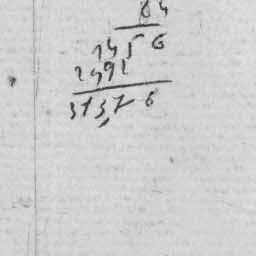 84
1456
2992
313,76